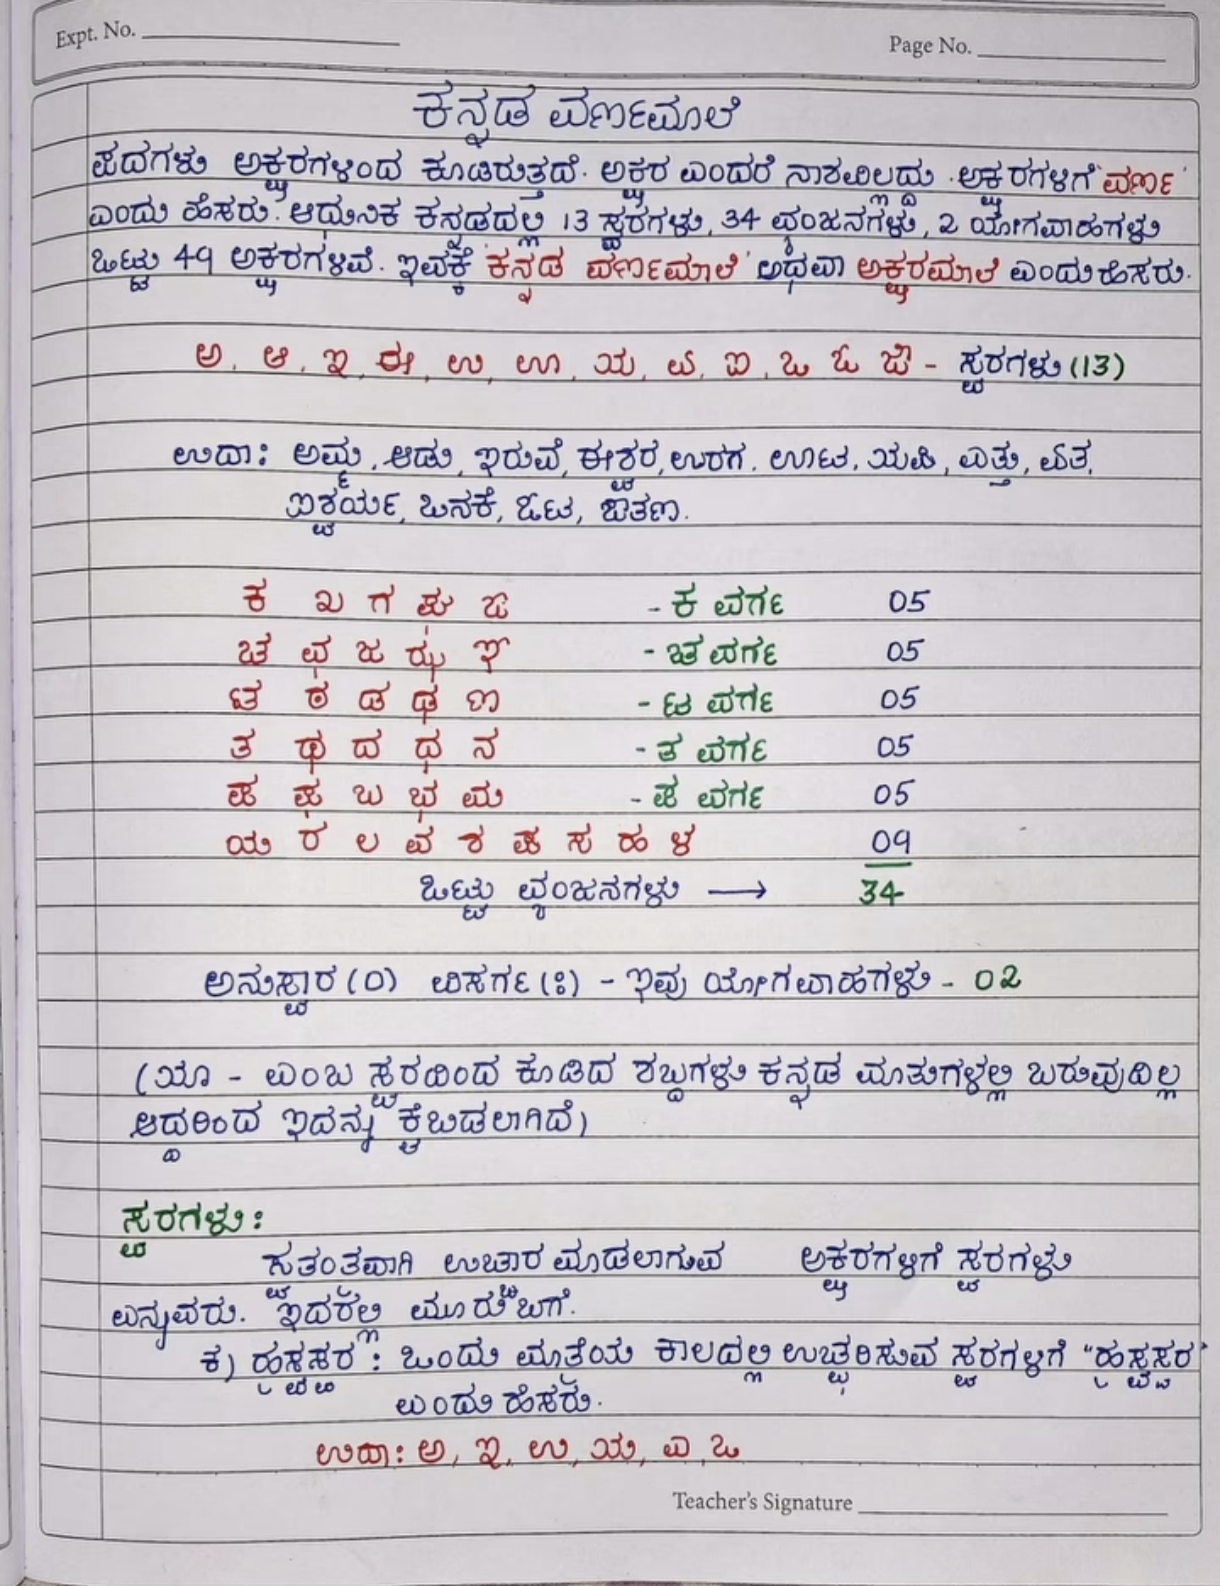 Expt. No.
Page No.
ಕನ್ನಡ ವರ್ಣಮಾಲೆ
ಪದಗಳು ಅಕ್ಷರಗಳಿಂದ ಕೂಡಿರುತ್ತದೆ. ಅಕ್ಷರ ಎಂದರೆ ನಾಶವಿಲ್ಲದ್ದು. ಅಕ್ಷರಗಳಿಗೆ 'ವರ್ಣ'
ಎಂದು ಹೆಸರು. ಆಧುನಿಕ ಕನ್ನಡದಲ್ಲಿ 13 ಸ್ವರಗಳು, 34 ವ್ಯಂಜನಗಳು, 2 ಯೋಗವಾಹಗಳು
ಒಟ್ಟು 49 ಅಕ್ಷರಗಳಿವೆ. ಇವಕ್ಕೆ 'ಕನ್ನಡ ವರ್ಣಮಾಲೆ' ಅಥವಾ ಅಕ್ಷರಮಾಲೆ ಎಂದು ಹೆಸರು.
ಅ, ಆ, ಇ, ಈ, ಉ, ಊ, ಋ, ಏ, ಐ, ಒ ಓ ಔ - ಸ್ವರಗಳು (13)
ಉದಾ: ಅಮ್ಮ, ಆಡು, ಇರುವೆ, ಈಶ್ವರ, ಉರಗ, ಊಟ, ಋಷಿ, ಎತ್ತು, ಏತ,
ಐಶ್ವರ್ಯ, ಒನಕೆ, ಓಟ, ಔತಣ.
ಕ ಖ ಗ ಘ ಙ - ಕ ವರ್ಗ 05
ಚ ಛ ಜ ಝ ಞ - ಚ ವರ್ಗ 05
ಟ ಠ ಡ ಢ ಣ - ಟ ವರ್ಗ 05
ತ ಥ ದ ಧ ನ - ತ ವರ್ಗ 05
ಪ ಫ ಬ ಭ ಮ - ಪ ವರ್ಗ 05
ಯ ರ ಲ ವ ಶ ಷ ಸ ಹ ಳ 09
ಒಟ್ಟು ವ್ಯಂಜನಗಳು → 34
ಅನುಸ್ವಾರ (ಂ) ವಿಸರ್ಗ (ಃ) - ಇವು ಯೋಗವಾಹಗಳು - 02
(ೠ - ಎಂಬ ಸ್ವರದಿಂದ ಕೂಡಿದ ಶಬ್ದಗಳು ಕನ್ನಡ ಮಾತುಗಳಲ್ಲಿ ಬರುವುದಿಲ್ಲ
ಆದ್ದರಿಂದ ಇದನ್ನು ಕೈಬಿಡಲಾಗಿದೆ)
ಸ್ವರಗಳು:
ಸ್ವತಂತ್ರವಾಗಿ ಉಚ್ಚಾರ ಮಾಡಲಾಗುವ ಅಕ್ಷರಗಳಿಗೆ ಸ್ವರಗಳು
ಎನ್ನುವರು. ಇದರಲ್ಲಿ ಮೂರು ಬಗೆ.
ಕ) ಹೃಸ್ವಸ್ವರ: ಒಂದು ಮಾತ್ರೆಯ ಕಾಲದಲ್ಲಿ ಉಚ್ಚರಿಸುವ ಸ್ವರಗಳಿಗೆ "ಹೃಸ್ವಸ್ವರ"
ಎಂದು ಹೆಸರು.
ಉದಾ: ಅ, ಇ, ಉ, ಋ, ಎ, ಒ
Teacher's Signature